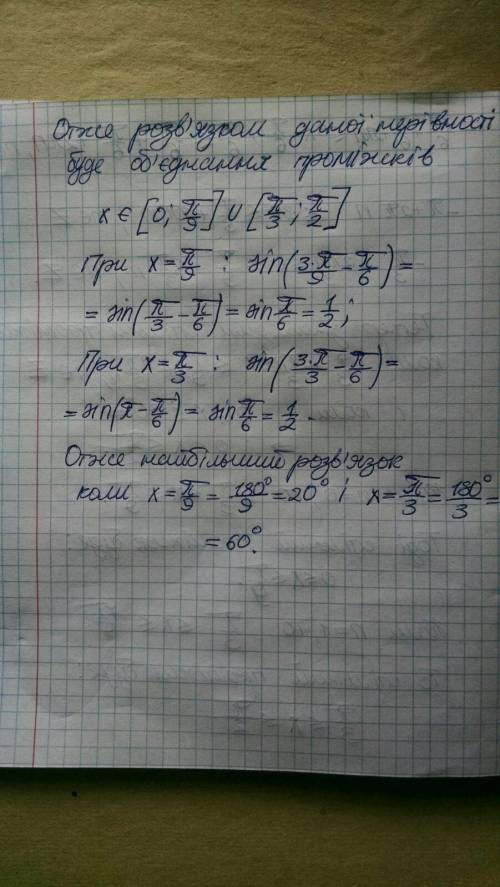 Отже розв'язком даної нерівності
буде об'єднання проміжків
x ∈ [0; π/9] ∪ [π/3; π/2]
При x = π/9 : sin(3·π/9 − π/6) =
= sin(π/3 − π/6) = sin π/6 = 1/2;
При x = π/3 : sin(3·π/3 − π/6) =
= sin(π − π/6) = sin π/6 = 1/2.
Отже найбільший розв'язок
коли x = π/9 = 180°/9 = 20° і x = π/3 = 180°/3 =
= 60°.